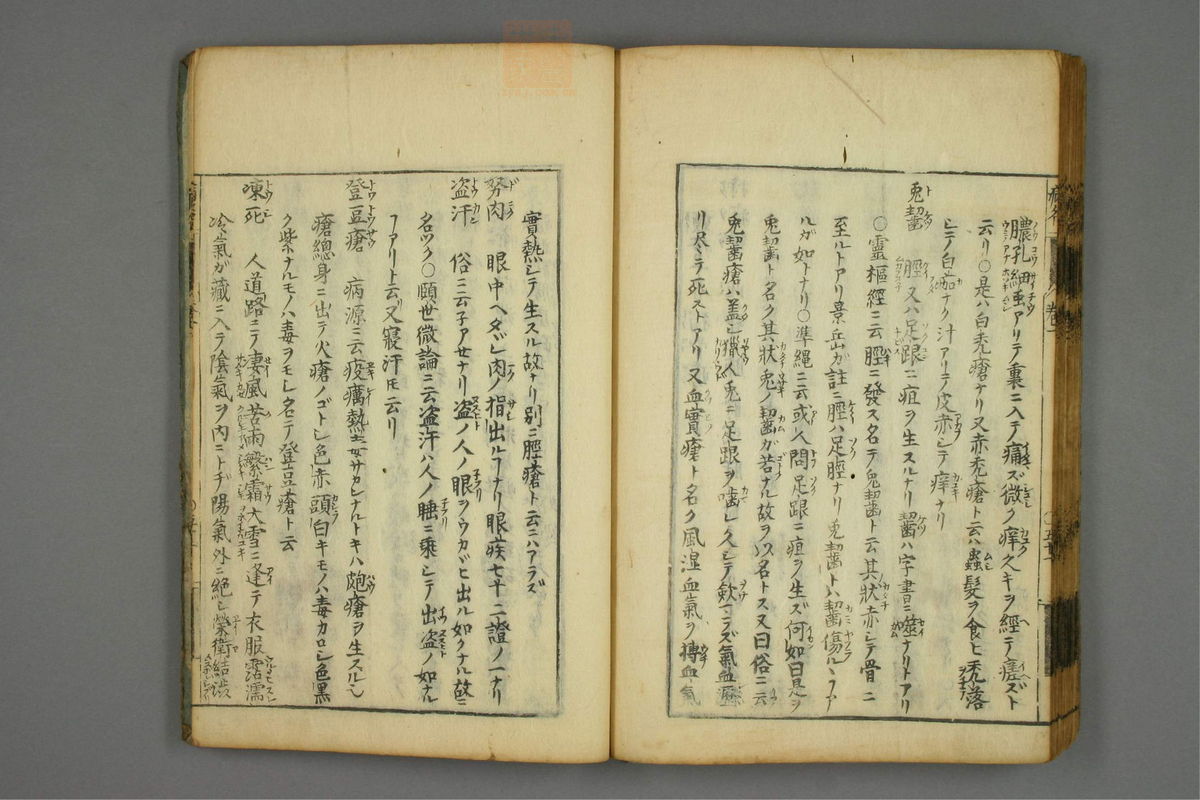 膿孔細虫アリテ裏ニ入テ痛ズ微ク痒久キヲ經テ瘥ズト
云リ○是ハ白禿瘡ナリ又赤禿瘡ト云ハ蟲髪ヲ食ヒ禿落
シテノ白痂ナク汁アリテ皮赤シテ痒ナリ
兎齧 脛又ハ足跟ニ疽ヲ生スルナリ齧ハ字書ニ噬ナリトアリ
○靈樞經ニ云脛ニ發ス名テ兎齧ト云其狀赤シテ骨ニ
至ルトアリ景岳ガ註ニ脛ハ足脛ナリ兎齧トハ齧傷ルヽ
ルガ如トナリ○準縄ニ云或人問足跟ニ疽ヲ生ズ何如曰是ヲ
兎齧ト名ク其狀兎ノ齧ガ若ナル故ヲ以名トス又曰俗ニ云
兎齧瘡ハ盖シ獵人兎ニ足跟ヲ嚙レ久シテ歛ラズ氣血
リ尽テ死ストアリ又血實瘡ト名ク風湿血氣ヲ搏血氣
實熱シテ生スル故ナリ別ニ脛瘡ト云ニハアラズ
努肉 眼中ヘダシ肉ノ指出ルヿナリ眼疾七十二證ノ一ナリ
盗汗 俗ニ云子アセナリ盗ノ人ノ眼ヲウカヾヒ出ル如クナル故ニ
名ヅク○頤世微論ニ云盗汗ハ人ノ睡ニ乘シテ出盗ノ如ナル
ヿアリト云又寝汗トモ云リ
登豆瘡 病源ニ云疫癘熱毒サカンナルトキハ皰瘡ヲ生スルシ
瘡總身ニ出テ火瘡ノゴトシ色赤頭白キモノハ毒カロシ色黑
ク紫ナルモノハ毒ヲモシ名テ登豆瘡ト云
凍死 人道路ニテ凄風苦雨繁霜大雪ニ逢テ衣服霑濡
冷氣ガ藏ニ入テ陰氣ヲ内ニトヂ陽氣外ニ絶シ榮衛結澁